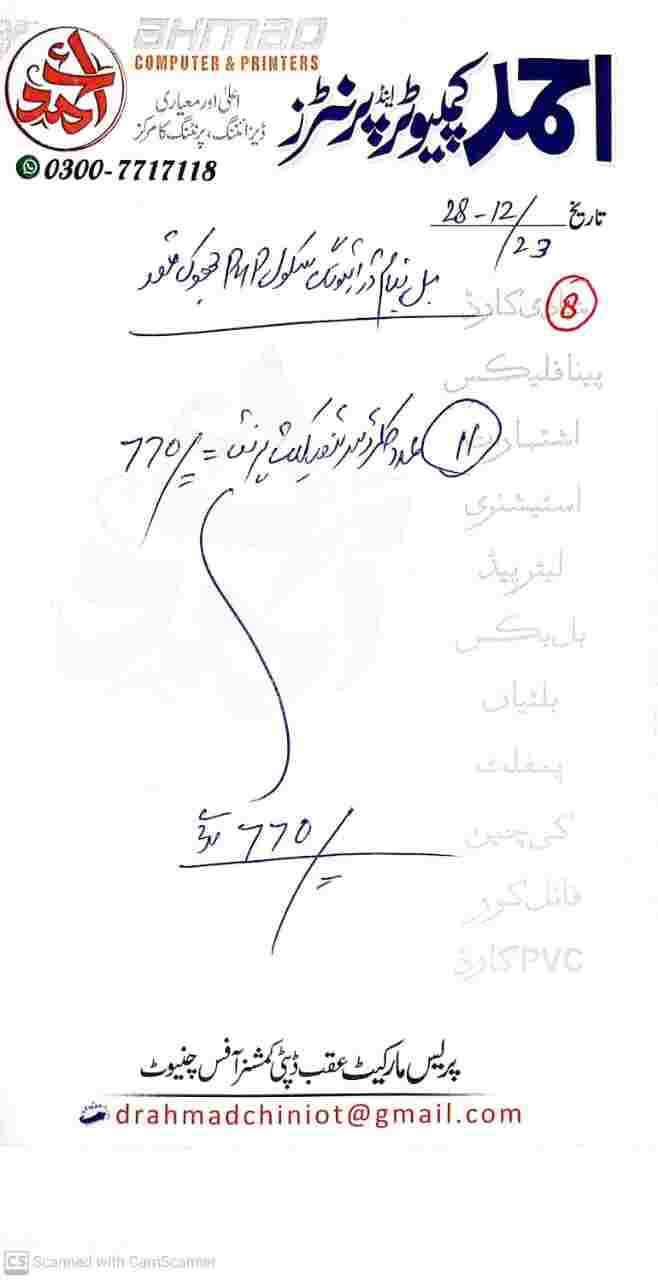 AHMAD
COMPUTER & PRINTERS
احمد کمپیوٹر اینڈ پرنٹرز
اعلیٰ اور معیاری
ڈیزائننگ، پرنٹنگ کا مرکز
احمد
0300-7717118
تاریخ 28-12/23
بل بنام ڈرائیونگ سکول PHP
8
شادی کارڈ
پینا فلیکس
اشتہارات
اسٹیشنری
لیٹر پیڈ
بل بکس
بلٹیاں
پمفلٹ
کی چین
فائل کور
PVC کارڈ
11 عدد کلر پرنٹ = 770/=
770/=
پریس مارکیٹ عقب ڈپٹی کمشنر آفس چنیوٹ
drahmadchiniot@gmail.com
CS Scanned with CamScanner